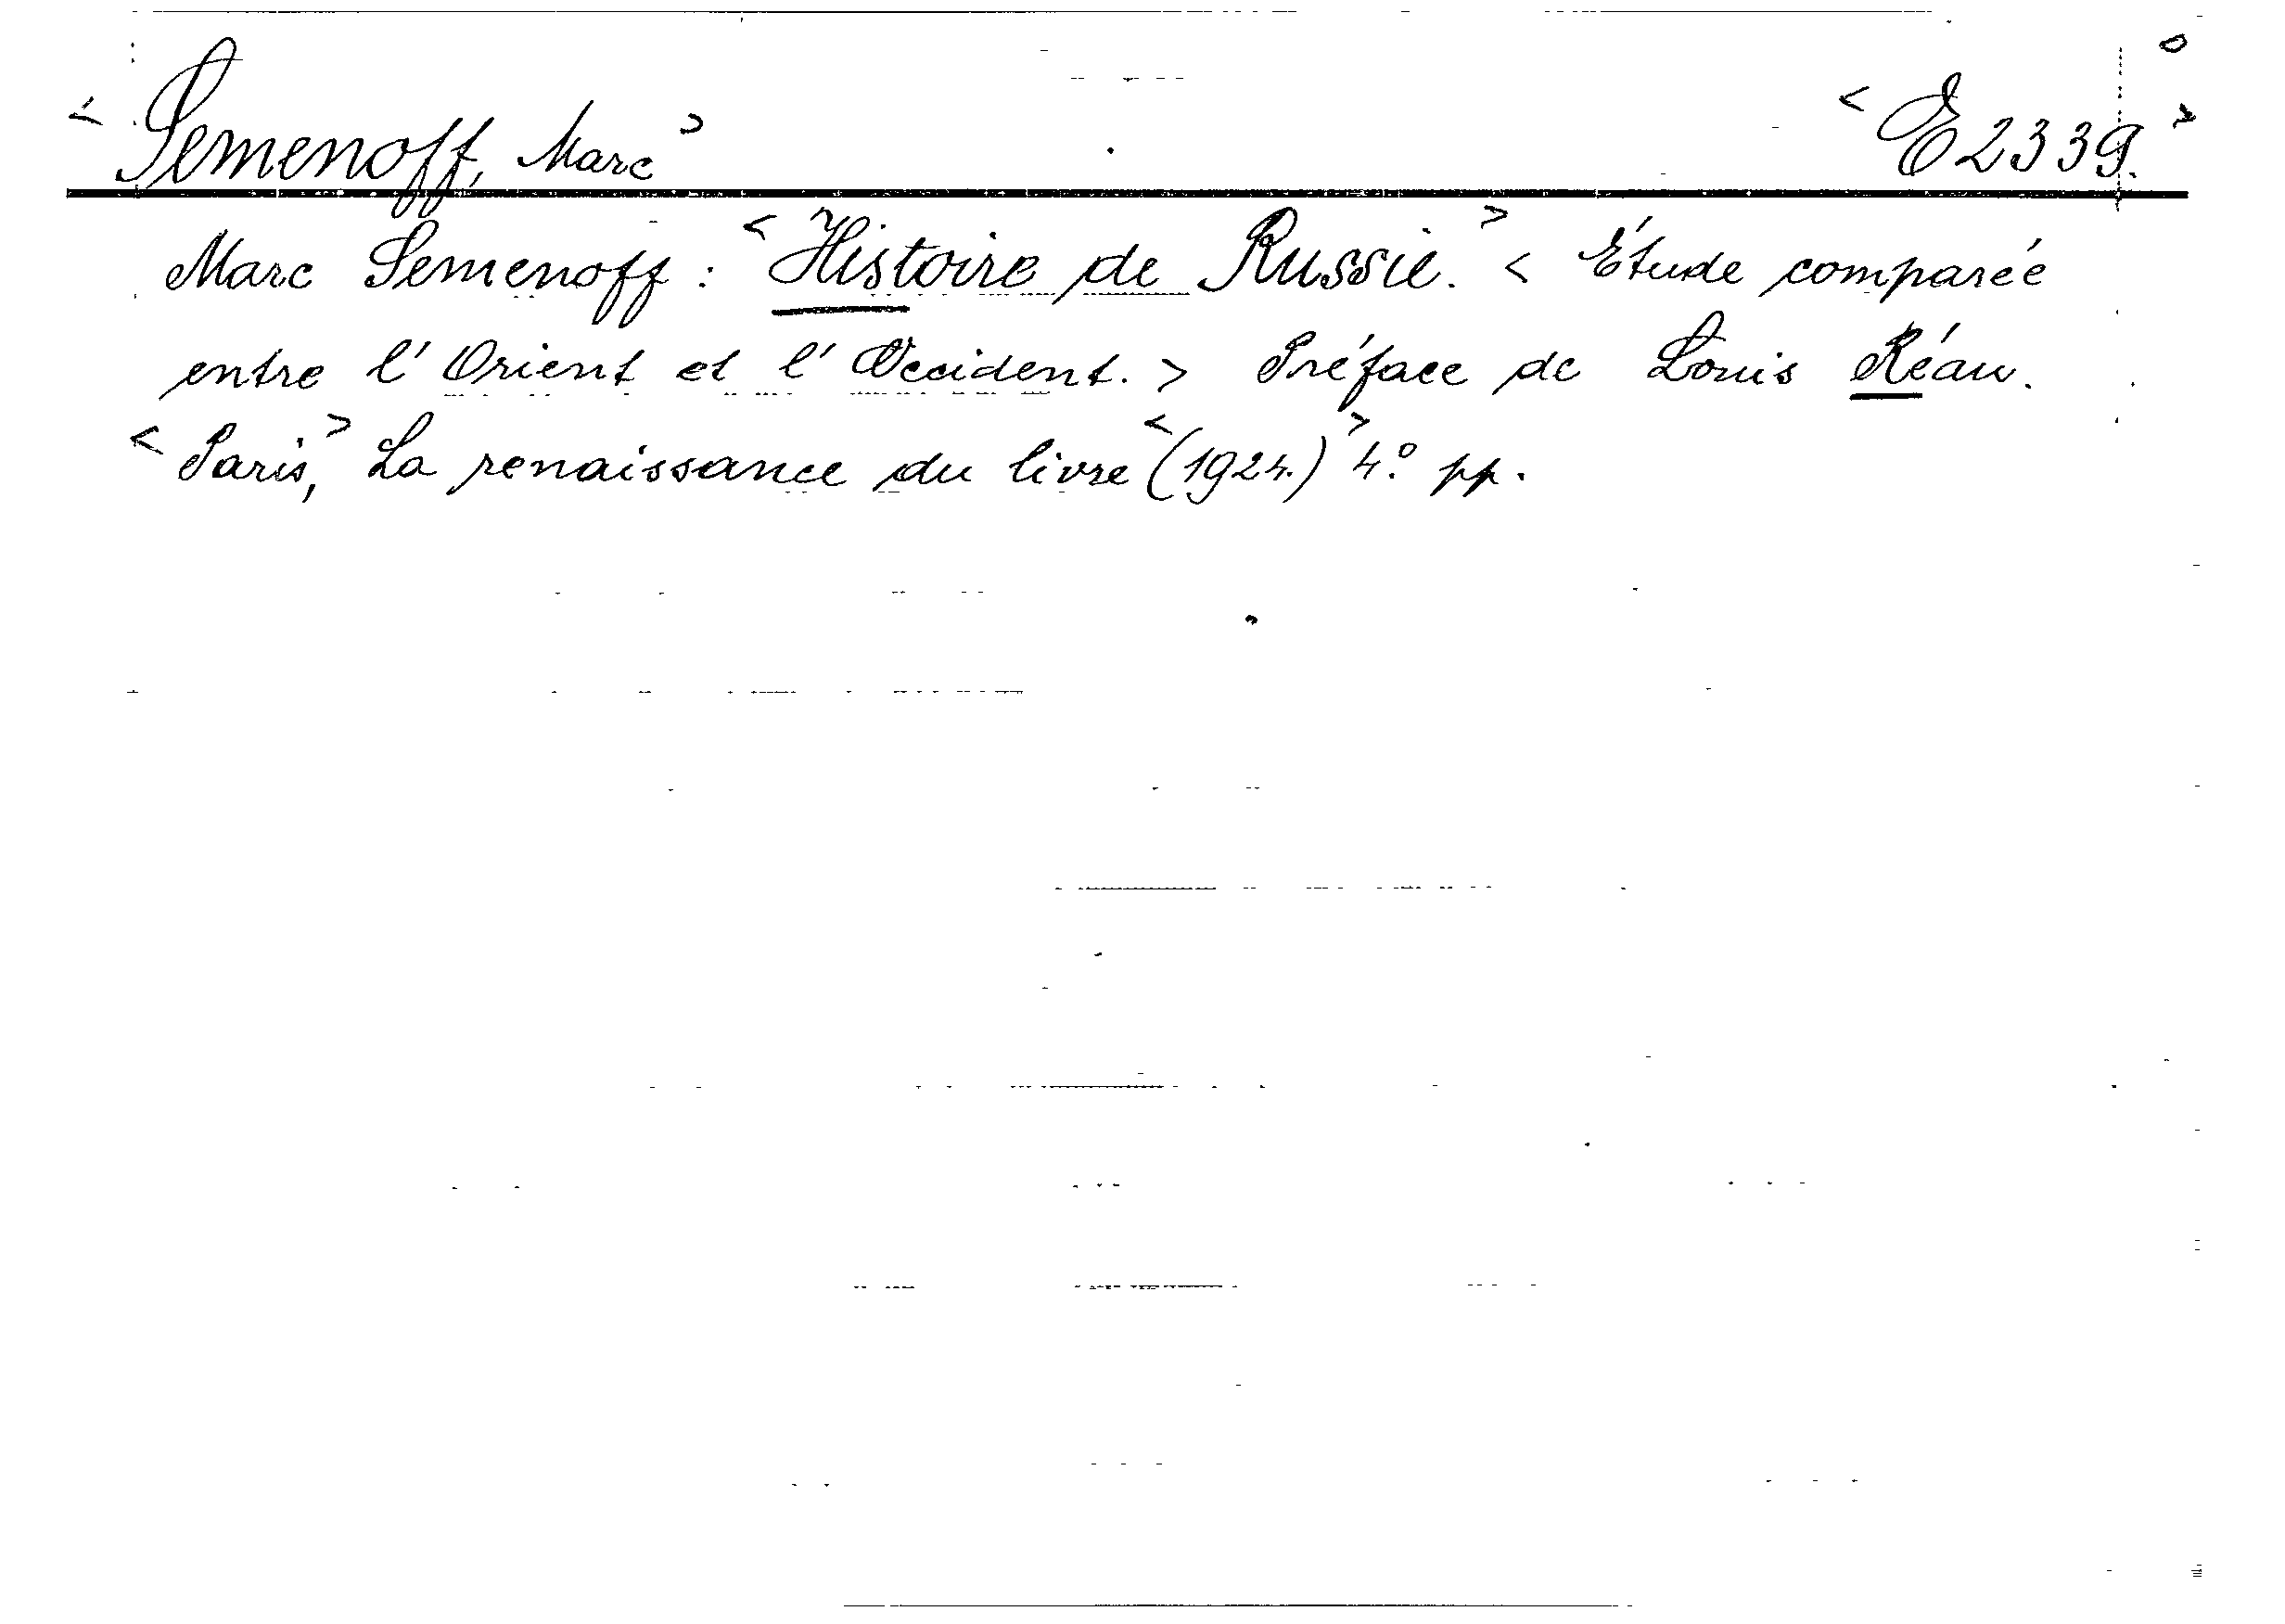 < Semenoff, Marc > < E 2339. >
Marc Semenoff : < Histoire de Russie. > < Étude comparée
entre l' Orient et l' Occident. > Préface de Louis Réau.
< Paris, > La renaissance du livre < (1924.) > 4.º pp.